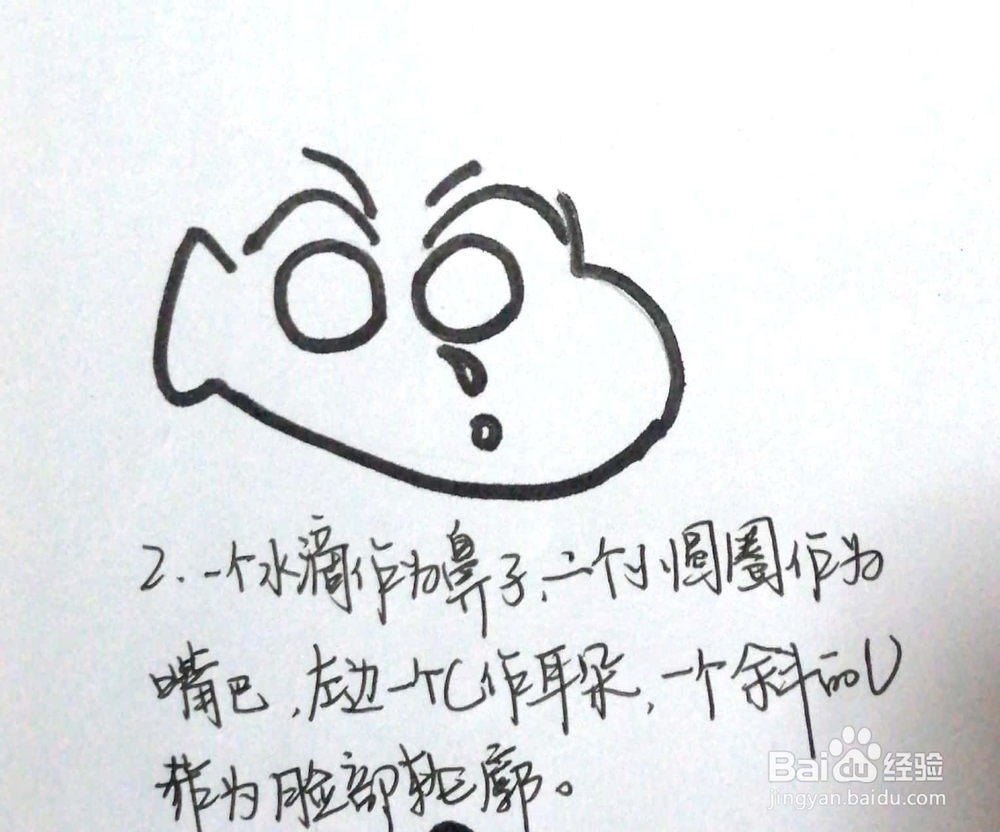 2.一个水滴作为鼻子,一个小圆圈作为
嘴巴,左边一个C作耳朵,一个斜的U
作为脸部轮廓。
Baidu经验
jingyan.baidu.com